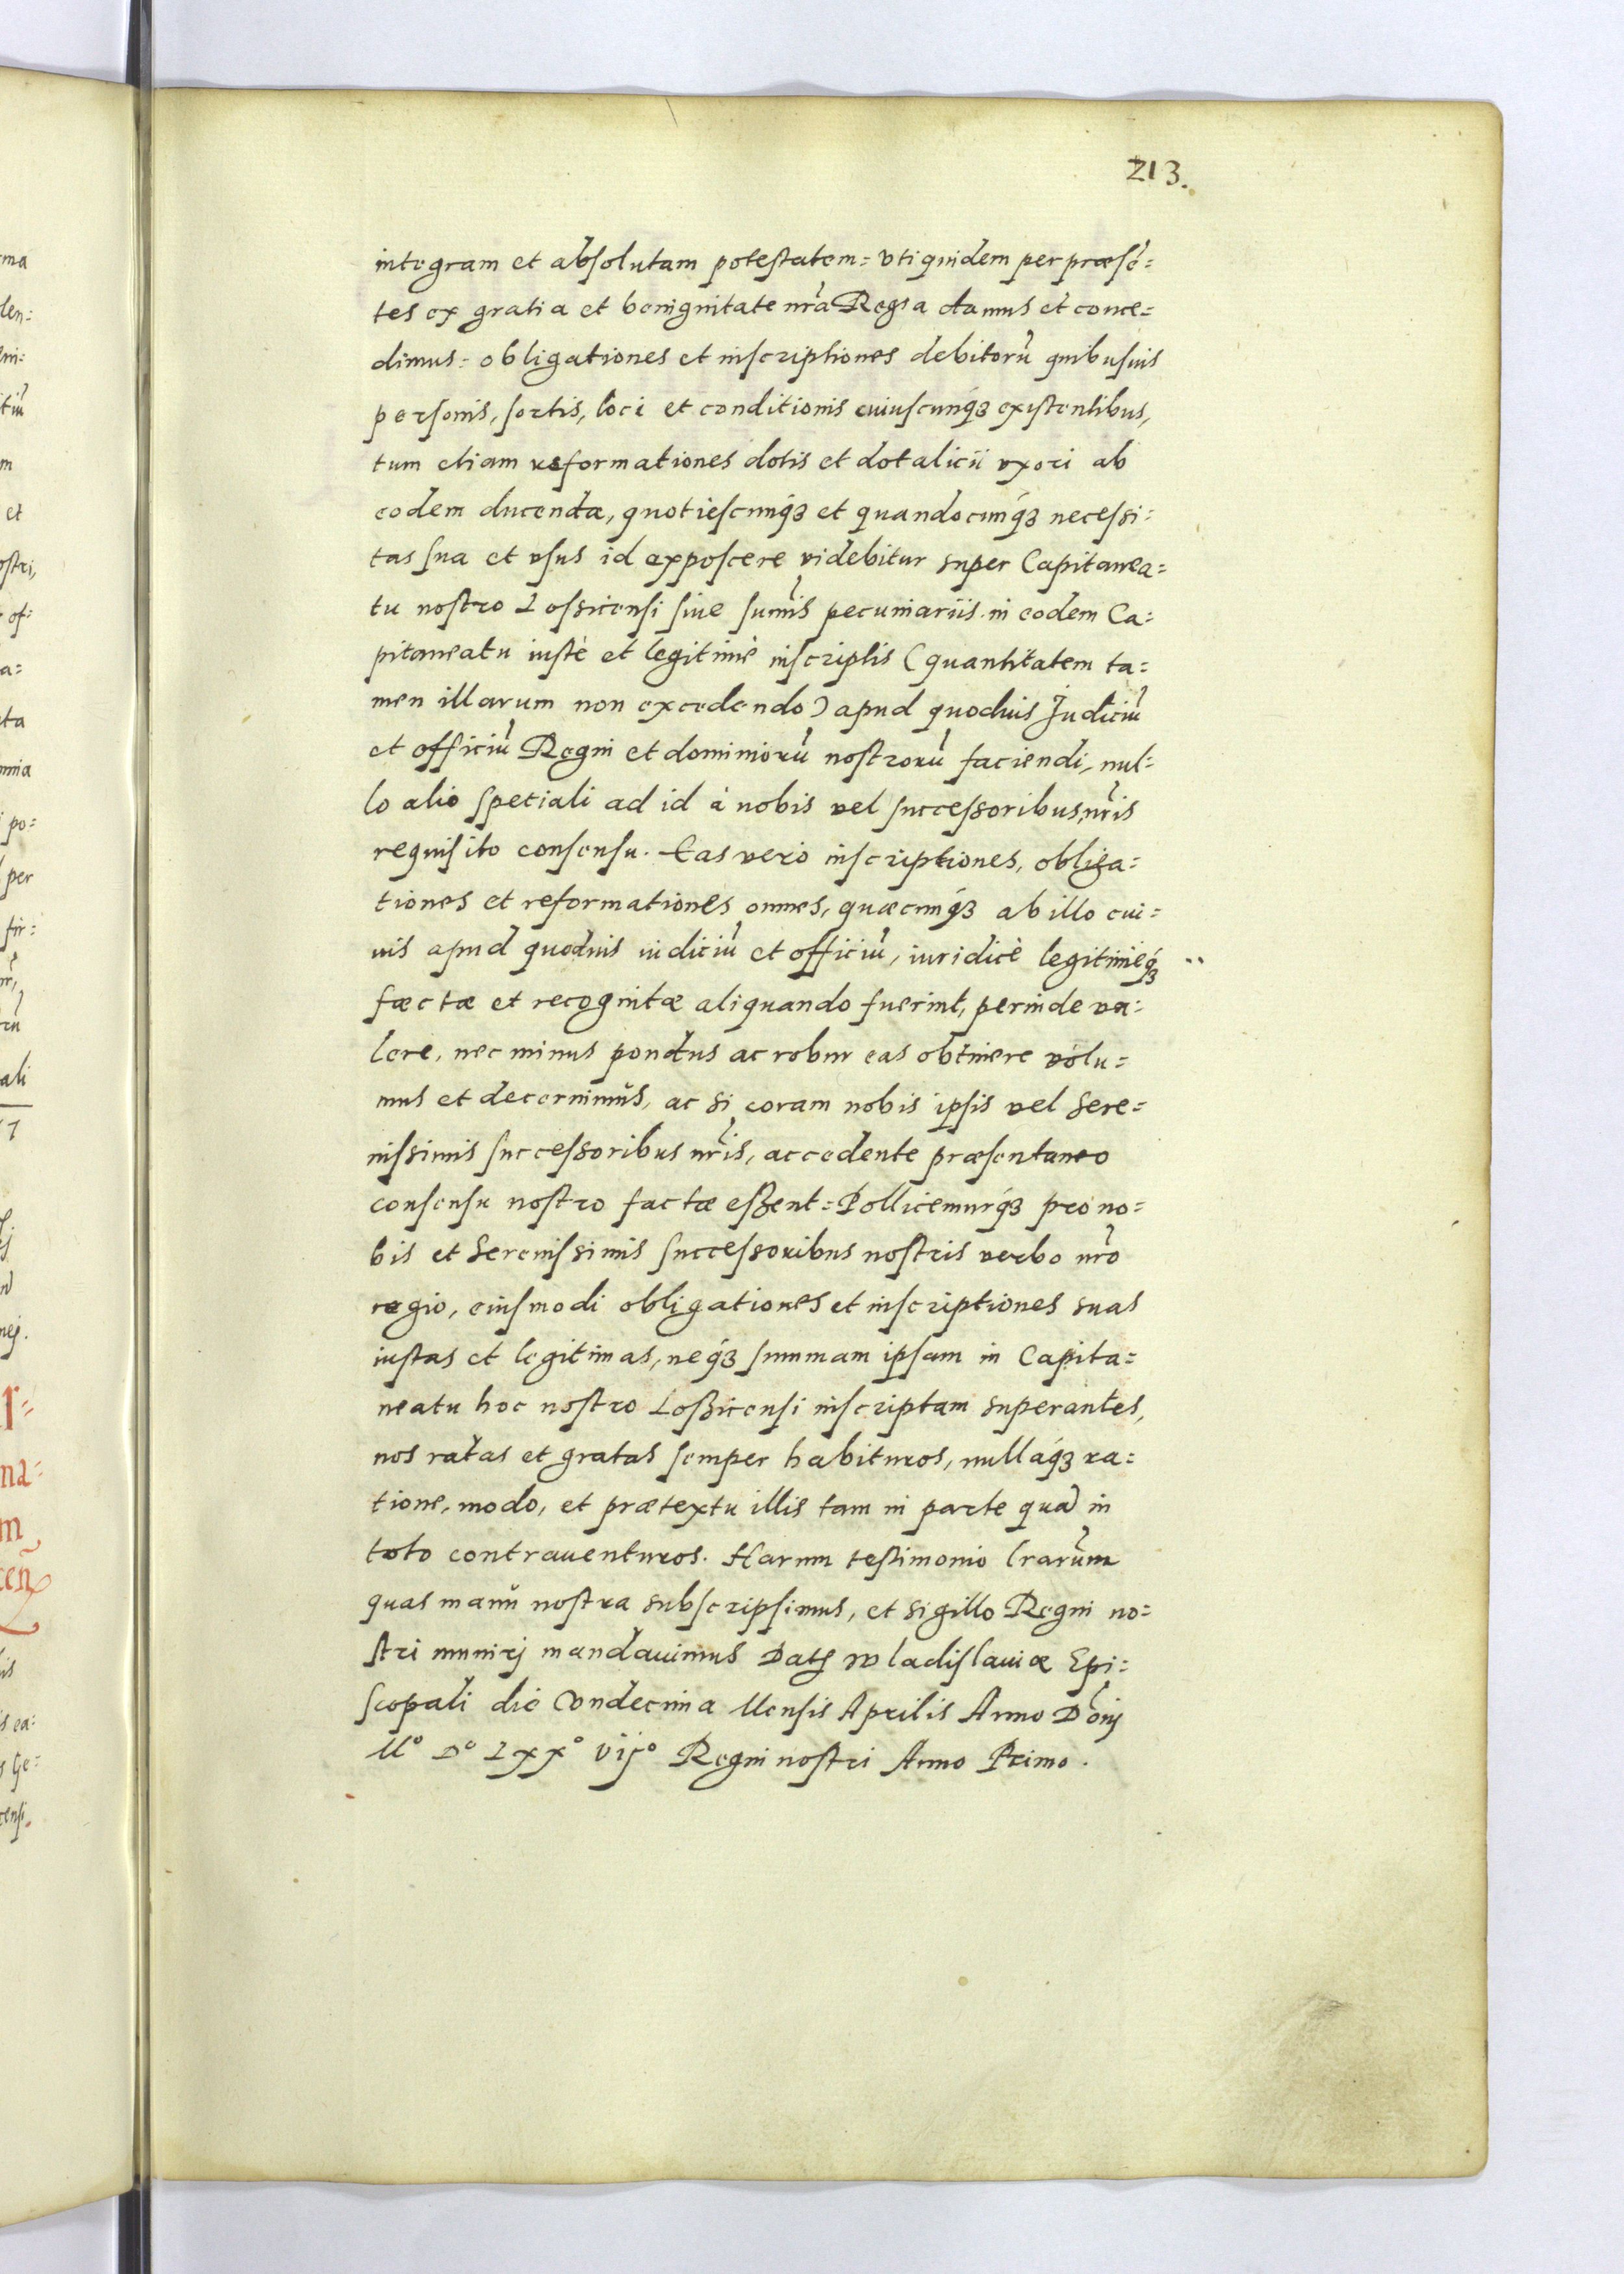 213.
integram et absolutam potestatem = vti quidem per præsē=
tes ex gratia et benignitate nr̃a Regia damus et conce=
dimus = obligationes et inscriptiones debitorũ quibusuis
personis, sortis, loci et conditionis cuiuscunqꝫ existentibus,
tum etiam reformationes dotis et dotalicii vxori ab
eodem ducendæ, quotiescunqꝫ et quandocunqꝫ necessi=
tas sua et vsus id exposcere videbitur super Capitanea=
tu nostro Lossicensi siue sum̃is pecuniariis in eodem Ca=
pitaneatu iustè et legitimè inscriptis (quantitatem ta=
men illarum non excedendo) apud quoduis Judiciũ
et officiũ Regni et dominiorũ nostrorũ faciendi, nul=
lo alio speciali ad id à nobis vel successoribus nr̃is
requisito consensu. Eas vero inscriptiones, obliga=
tiones et reformationes omnes, quæcunqꝫ ab illo cui=
uis apud quoduis iudiciũ et officiũ, iuridicè legitimeqꝫ
factæ et recognitæ aliquando fuerint, perinde va=
lere, nec minus pondus ac robur eas obtinere volu=
mus et decernimus, ac si coram nobis ipsis vel Sere=
nissimis successoribus nr̃is, accedente præsentaneo
consensu nostro factæ essent = Pollicemurqꝫ pro no=
bis et Serenissimis successoribus nostris verbo nr̃o
regio, eiusmodi obligationes et inscriptiones suas
iustas et legitimas, neqꝫ summam ipsam in Capita=
neatu hoc nostro Lossicensi inscriptam superantes,
nos ratas et gratas semper habituros, nullaqꝫ ra=
tione, modo, et prætextu illis tam in parte quã in
toto contrauenturos. Harum testimonio lr̃arum
quas manũ nostra subscripsimus, et sigillo Regni no=
stri munirj mandauimus Datꝭ Wladislauiæ Epi=
scopali die Vndecima Mensis Aprilis Anno Dõnj
Mº Dº Lxxº vijº Regni nostri Anno Primo.